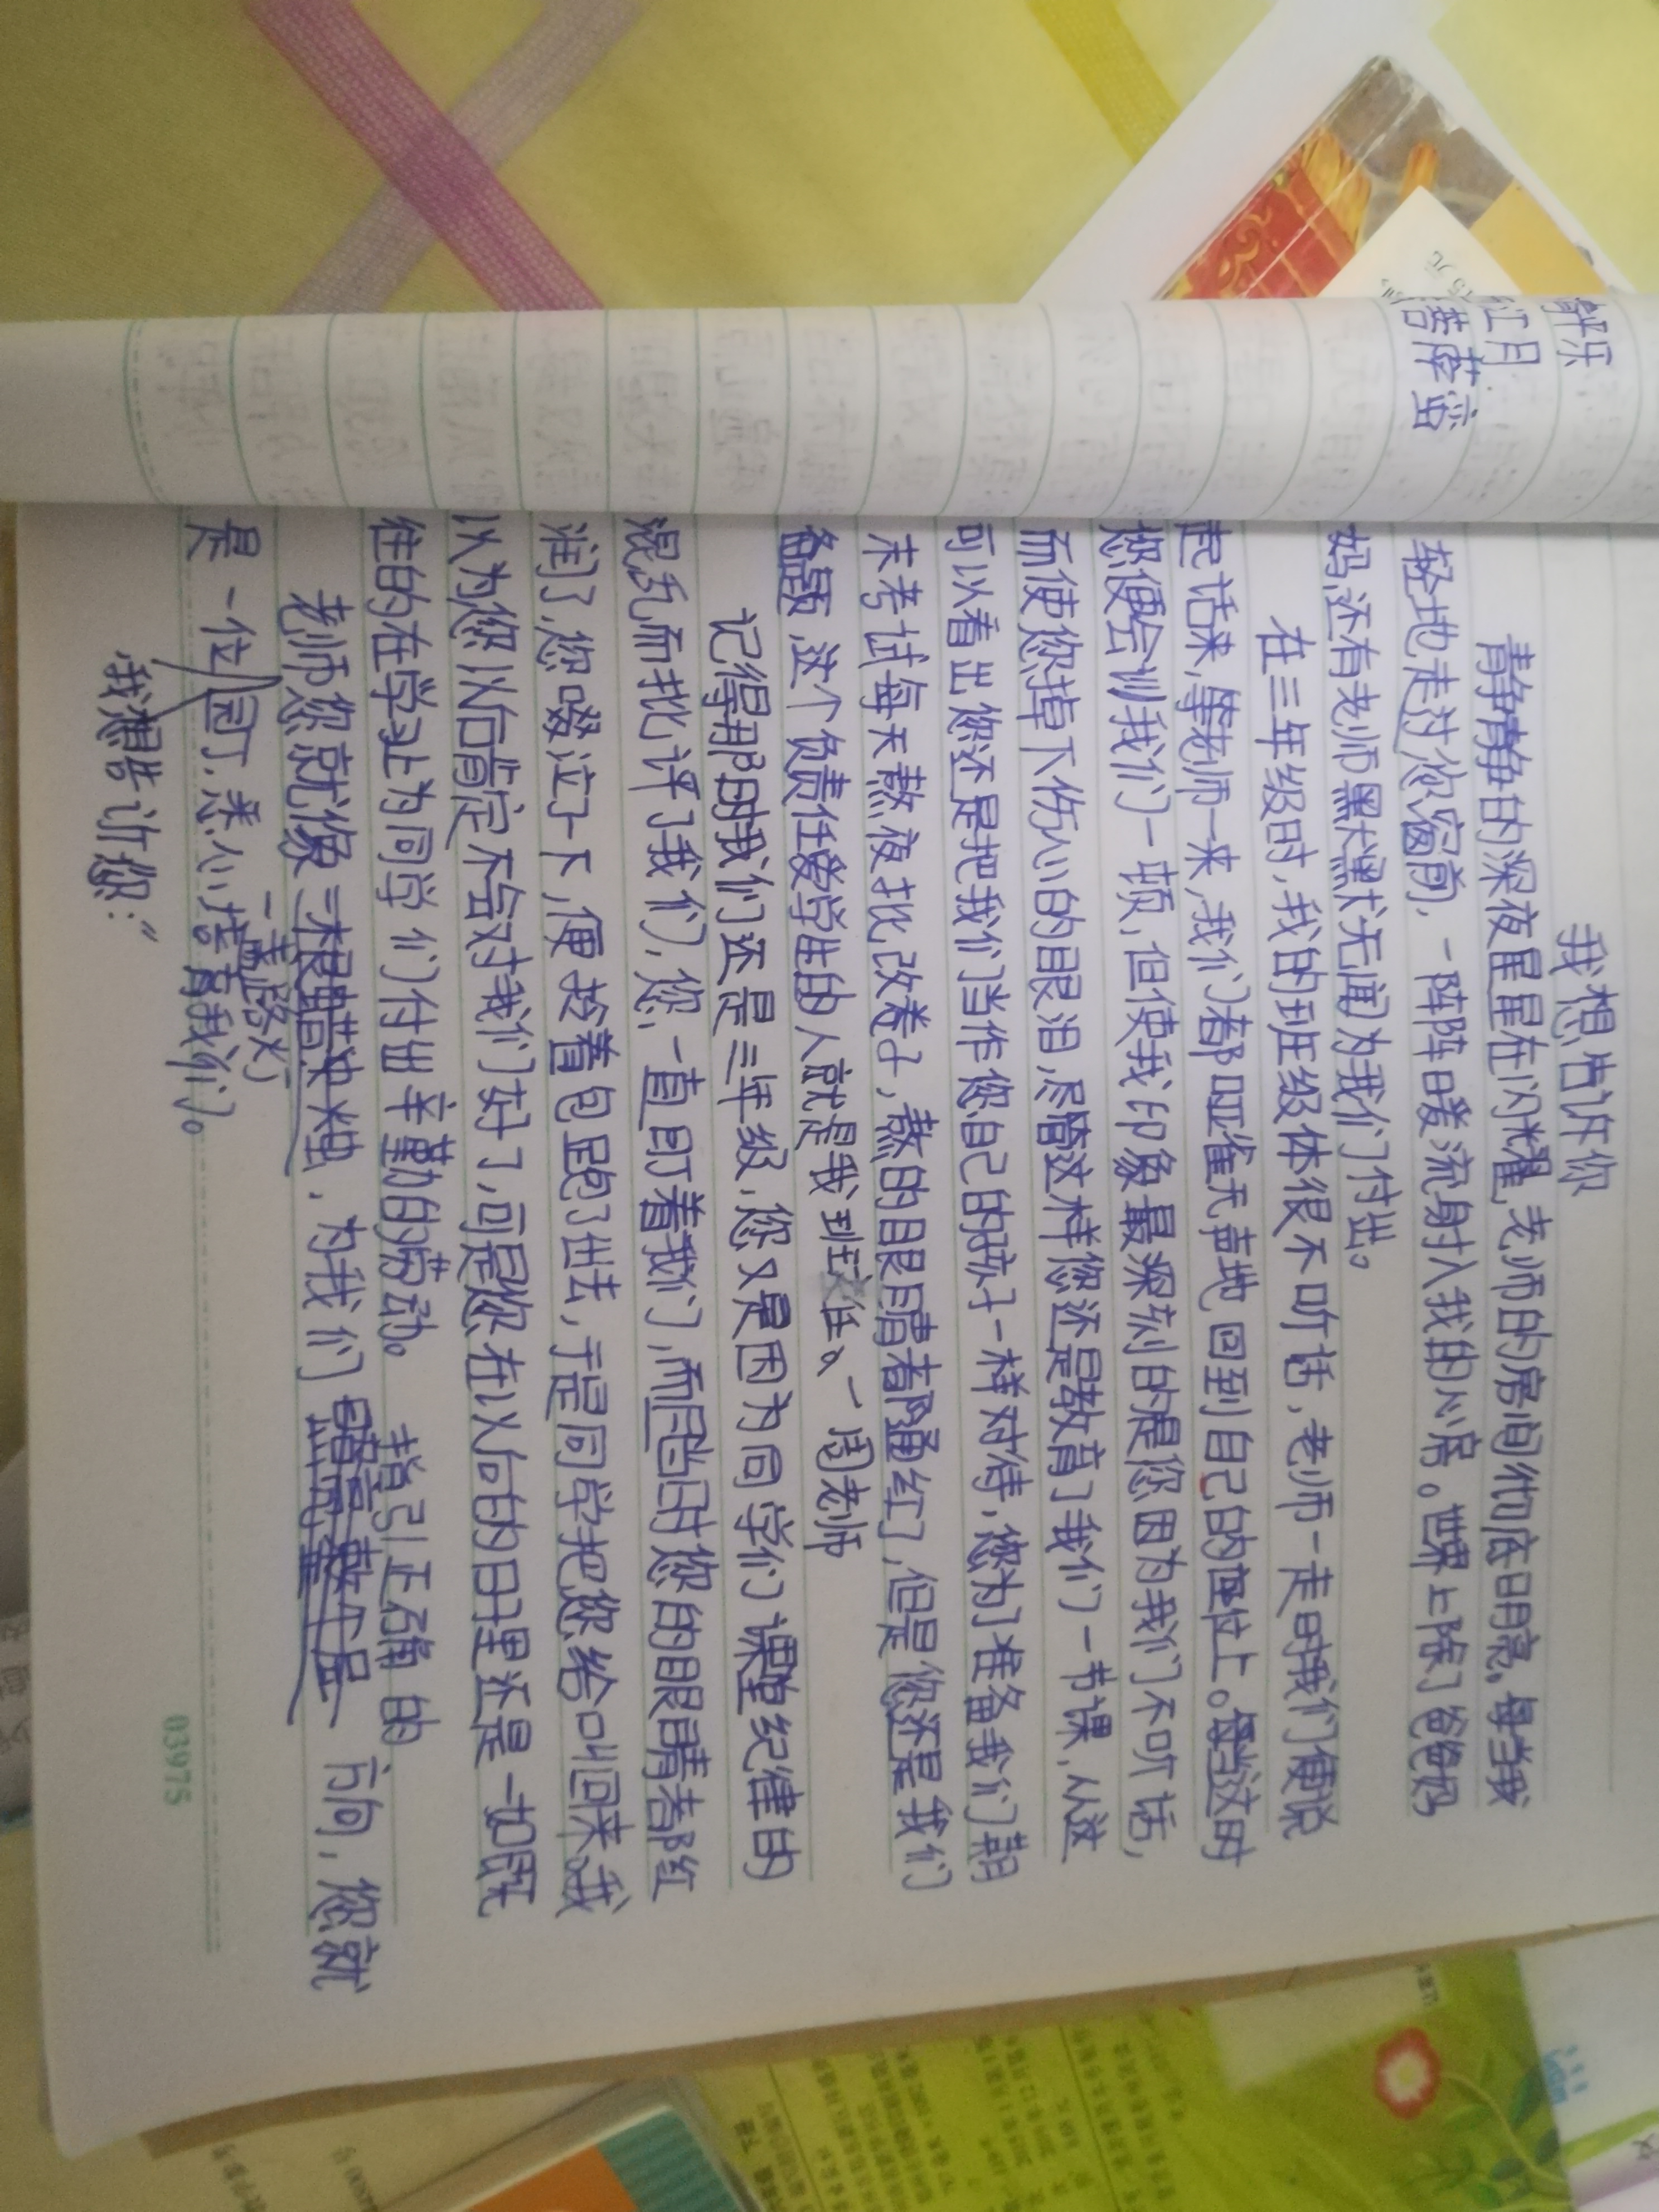 我想告诉你
静静的深夜星星在闪耀,老师的房间彻底明亮,每当我
轻地走过您窗前,一阵阵暖流射入我的心房。世界上除了爸爸妈
妈,还有老师默默无闻为我们付出。
在三年级时,我的班级体很不听话,老师一走时我们便说
起话来,等老师一来,我们都哑雀无声地回到自己的座位上。每当这时
您便会训我们一顿,但使我印象最深刻的是您因为我们不听话,
而使您掉下伤心的眼泪,尽管这样您还是教育了我们一节课,从这
可以看出您还是把我们当作您自己的孩子一样对待,您为了准备我们期
末考试每天熬夜批改卷子,熬的眼睛都通红了,但是您还是我们
备题,这个负责任爱学生的人就是我到班主任。一周老师
记得那时我们还是三年级,您又是因为同学们课堂纪律的
混乱而批评了我们,您,一直盯着我们,而且当时您的眼睛都红
润了,您啜泣了一下,便拎着包跑了出去,于是同学把您给叫回来,我
以为您以后肯定不会对我们好了,可是您在以后的日里还是一如既
往的在学习上为同学们付出辛勤的劳动。
指引正确的
老师您就像 为我们 方向,您就
一盏路灯
是一位园丁,悉心培育我们。
"我想告诉您:"
清平乐
江月
菩萨蛮
03975